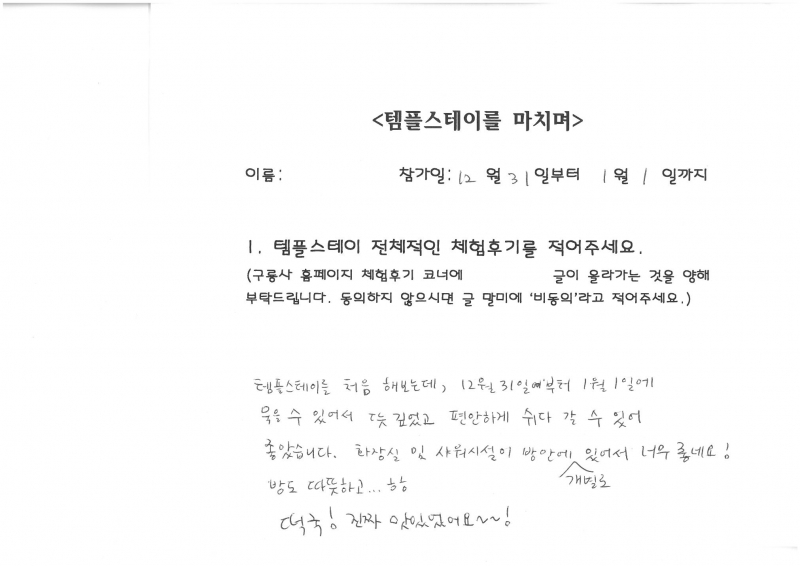 <템플스테이를 마치며>
이름: 참가일: 12 월 31일부터 1월 1 일까지
1. 템플스테이 전체적인 체험후기를 적어주세요.
(구룡사 홈페이지 체험후기 코너에 글이 올라가는 것을 양해
부탁드립니다. 동의하지 않으시면 글 말미에 '비동의'라고 적어주세요.)
템플스테이를 처음 해보는데, 12월 31일부터 1월 1일에
묵을 수 있어서 뜻 깊었고 편안하게 쉬다 갈 수 있어
좋았습니다. 화장실 및 샤워시설이 방안에 개별로 있어서 너무 좋네요!
방도 따뜻하고... ㅎㅎ
떡국! 진짜 맛있었어요~~!